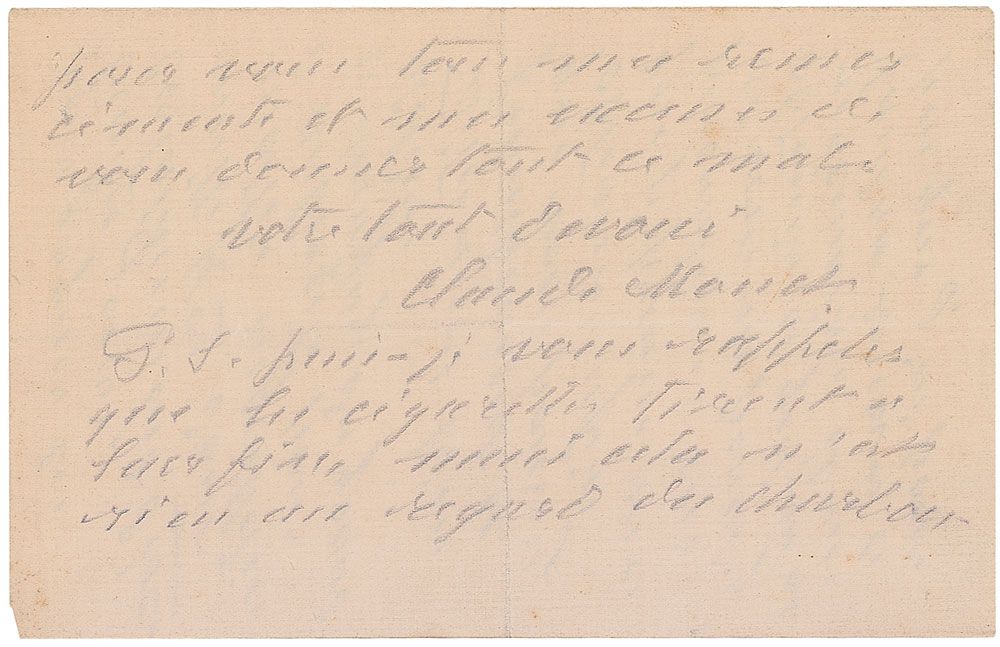 pour vous tous mes remer
ciments et mes excuses de
vous donner tant de mal.
votre tout dévoué
Claude Monet
P. S. puis-je vous rappeler
que les cigarettes tirent à
leur fin, mais cela n'est
rien au regard du charbon